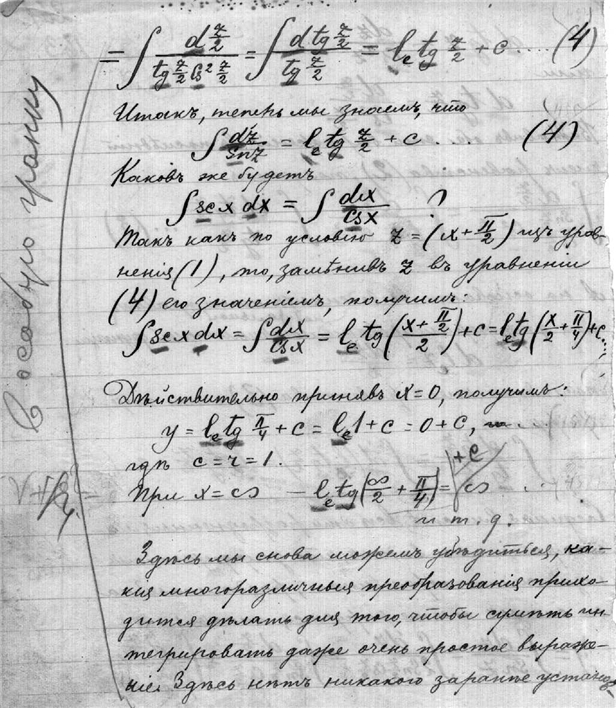 = ∫ d z/2 / (tg z/2 cs² z/2) = ∫ d tg z/2 / tg z/2 = lₑ tg z/2 + c .... (4)
Итакъ, теперь мы знаемъ, что
∫ dz/snz = lₑ tg z/2 + c .. .. (4)
Каковъ же будетъ
∫ sc x dx = ∫ dx/csx ?
Такъ какъ по условію z = (x + π/2) изъ урав-
ненія (1), то, замѣнивъ z въ уравненіи
(4) его значеніемъ, получимъ:
∫ sc x dx = ∫ dx/csx = lₑ tg ((x + π/2)/2) + c = lₑ tg (x/2 + π/4) + c...
Дѣйствительно принявъ x = 0, получимъ:
y = lₑ tg π/4 + c = lₑ 1 + c = 0 + c,
гдѣ c = r = 1.
При x = ∞ – lₑ tg (∞/2 + π/4) = ∞ + c
и т. д.
Здѣсь мы снова можемъ убѣдиться, ка-
кія многоразличныя преобразованія прихо-
дится дѣлать для того, чтобы сумѣть ин
тегрировать даже очень простое выраже-
ніе. Здѣсь нѣтъ никакого заранѣе устано
Въ особую гранку